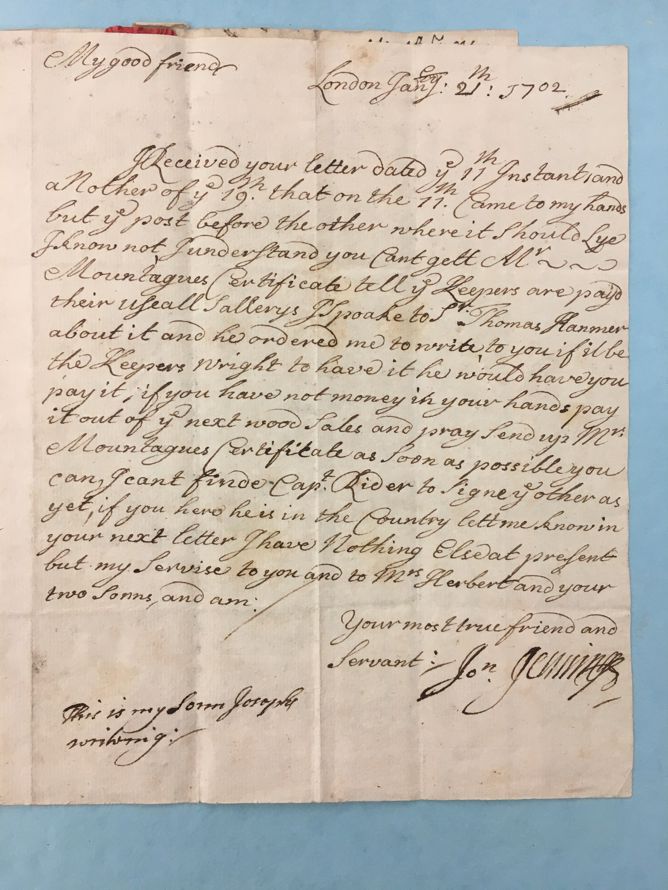 My good friend
London Janry: 21th: 1702
I Received your letter dated ye 11th Instant, and
a Nother of ye 19th: that on the 11th: Came to my hands
but ye post before the other where it should Lye
I know not I understand you Cant gett Mr
Mountagues Certificate tell ye Keepers are payd
their useall Sallerys I Spoake to Sr: Thomas Hanmer
about it and he ordered me to write to you if it be
the Keepers Wright to have it he would have you
pay it; if you have not money in your hands pay
it out of ye next wood Sales and pray Send up Mr:
Mountagues Certificate as Soon as possible you
can, I cant finde Capt. Rider to Signe ye other as
yet, if you here he is in the Country lett me know in
your next letter I have Nothing Else at present
but my Servise to you and to Mrs Herbert and your
two Sonns, and am:
Your most true friend and
Servant: Jon. Jennings
This is my Sonn Josephs
writing: